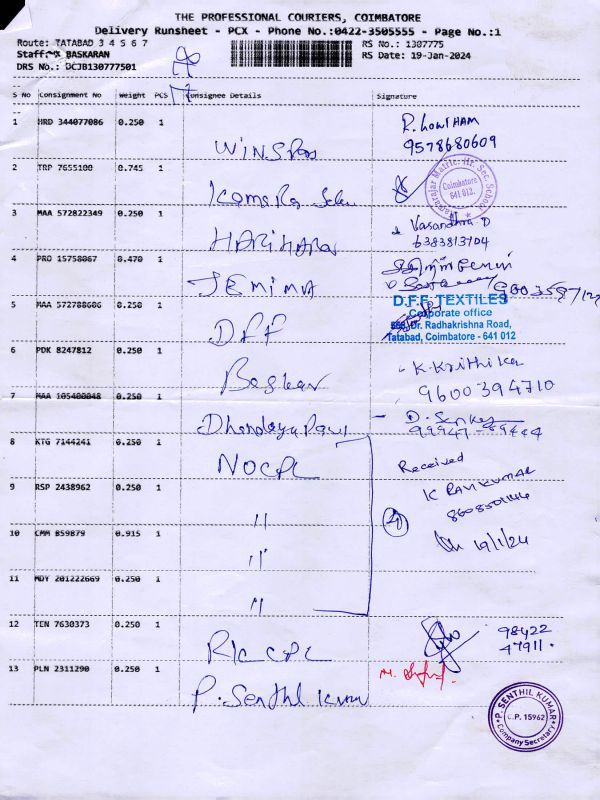 THE PROFESSIONAL COURIERS, COIMBATORE
Delivery Runsheet - PCX - Phone No.:0422-3505555 - Page No.:1
Route: TATABAD 3 4 5 6 7 RS No.: 1307775
Staff: BASKARAN RS Date: 19-Jan-2024
DRS No.: DCJB130777501
S No Consignment No Weight PCS Consignee Details Signature
1 HRD 344077086 0.250 1
R. Gowtham
9578680609
2 TRP 7655100 0.745 1
Matric. Hr. Sec. School
Coimbatore
641 012.
3 MAA 572822349 0.250 1 HARIHARAN Vasandhra D
6383813704
4 PRO 15758067 0.470 1 JEMIMA
5 MAA 572788606 0.250 1 DFF
D.F.F. TEXTILES
Corporate office
Dr. Radhakrishna Road,
Tatabad, Coimbatore - 641 012
6 PDK 8247812 0.250 1 Baskar K. Krithika
9600394710
7 MAA 105400048 0.250 1
8 KTG 7144241 0.250 1 NOCPL Received
K RAVIKUMAR
9 RSP 2438962 0.250 1 "
10 CMM 859879 0.915 1 " 19/1/24
11 MDY 201222669 0.250 1 "
12 TEN 7630373 0.250 1 98422
47911.
13 PLN 2311290 0.250 1 P. Senthil Kumar
P. SENTHIL KUMAR
C.P. 15962
Company Secretary